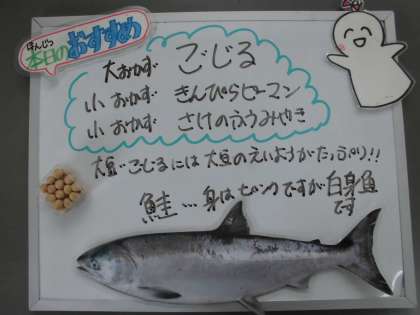 ほんじつ
本日の おすすめ
大おかず ごじる
小おかず きんぴらピーマン
小おかず さけのふうみやき
大豆…ごじるには大豆のえいようがたっぷり!!
鮭…身はピンクですが白身魚
です